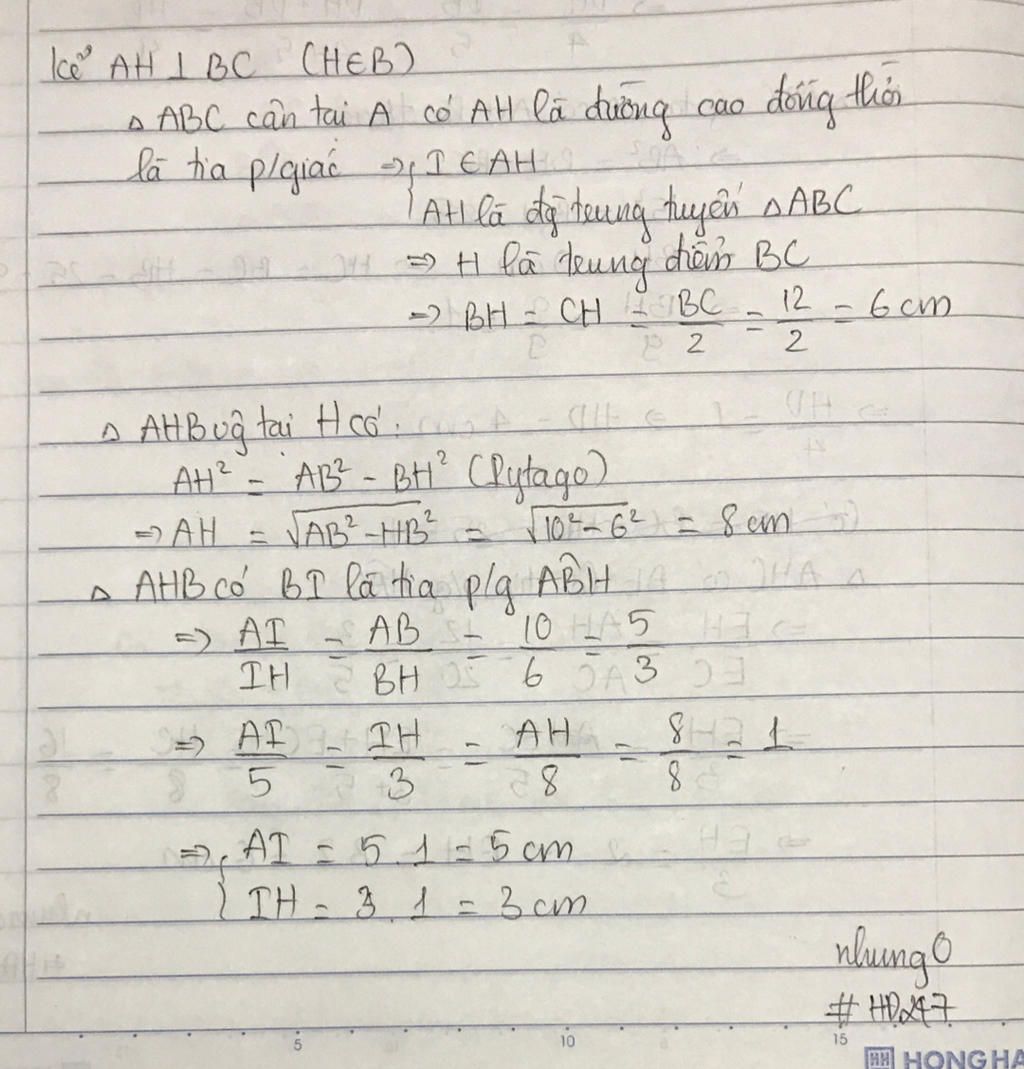 kẻ AH ⊥ BC (H∈B)
△ ABC cân tại A có AH là đường cao đồng thời
là tia p/giác => { I ∈ AH
AH là đg trung tuyến △ABC
=> H là trung điểm BC
=> BH = CH = BC/2 = 12/2 = 6 cm
△ AHB vg tại H có:
AH² = AB² - BH² (Pytago)
=> AH = √(AB² - HB²) = √(10² - 6²) = 8 cm
△ AHB có BI là tia p/g ABH
=> AI/IH = AB/BH = 10/6 = 5/3
=> AI/5 = IH/3 = AH/8 = 8/8 = 1
=> { AI = 5 . 1 = 5 cm
IH = 3 . 1 = 3 cm
nhung0
# HD247
5 10 15
HH HONG HA